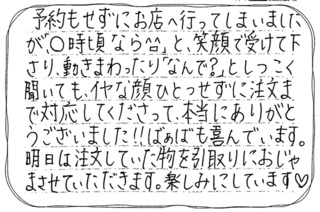 予約もせずにお店へ行ってしまいました
が、〇時頃なら^^」と、笑顔で受けて下
さり、動きまわったり「なんで?」としつこく
聞いても、イヤな顔ひとつせずに注文ま
で対応してくださって、本当にありがと
うございました!!ばぁばも喜んでいます。
明日は注文していた物を引取りにおじゃ
まさせていただきます。楽しみにしています♡